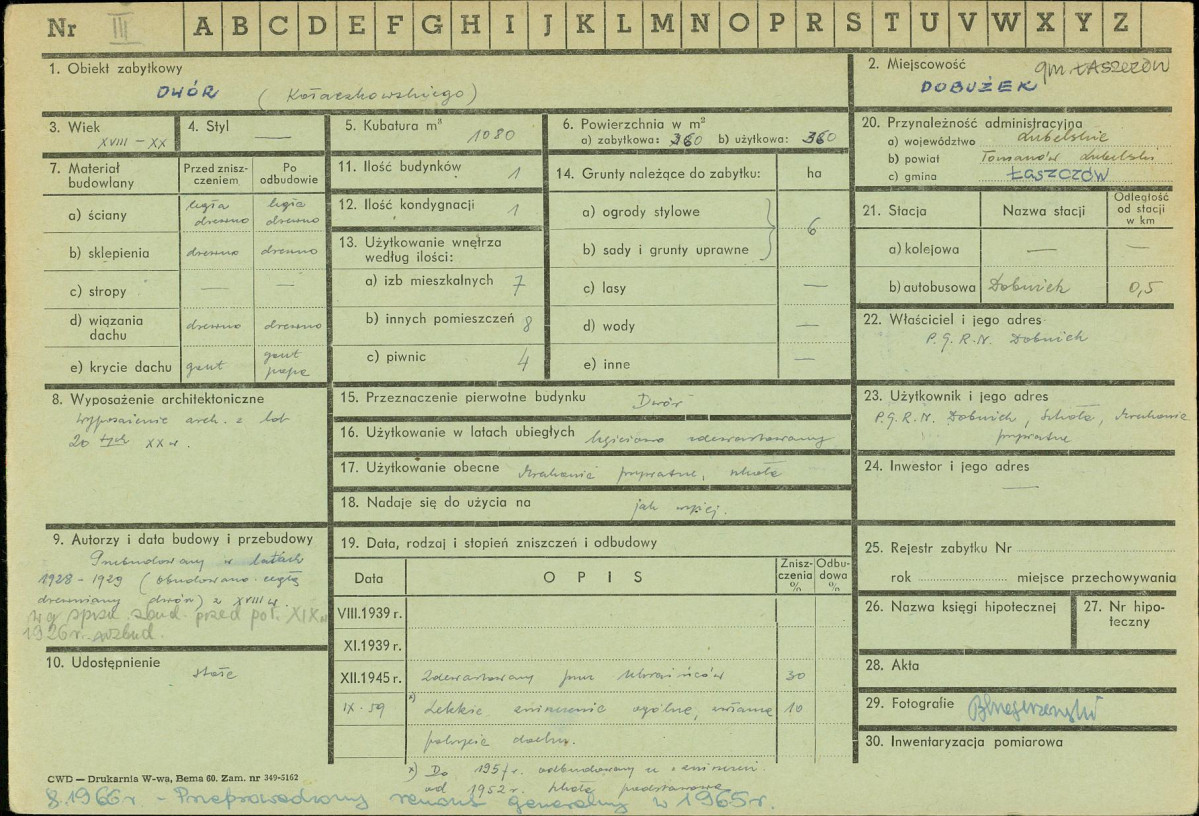 Nr III A B C D E F G H I J K L M N O P R S T U V W X Y Z
1. Obiekt zabytkowy
DWÓR (Kołaczkowskiego)
2. Miejscowość gm. ŁASZCZÓW
DOBUŻEK
3. Wiek
XVIII – XX
4. Styl
—
5. Kubatura m³
1080
6. Powierzchnia w m²
a) zabytkowa: 360 b) użytkowa: 360
20. Przynależność administracyjna
a) województwo Lubelskie
b) powiat Tomaszów Lubelski
c) gmina ŁASZCZÓW
7. Materiał budowlany
Przed zniszczeniem
Po odbudowie
a) ściany cegła drewno cegła drewno
b) sklepienia drewno drewno
c) stropy — —
d) wiązania dachu drewno drewno
e) krycie dachu gont gont papa
11. Ilość budynków 1
12. Ilość kondygnacji 1
13. Użytkowanie wnętrza
według ilości:
a) izb mieszkalnych 7
b) innych pomieszczeń 8
c) piwnic 4
14. Grunty należące do zabytku: ha
a) ogrody stylowe
b) sady i grunty uprawne 6
c) lasy —
d) wody —
e) inne —
21. Stacja Nazwa stacji Odległość od stacji w km
a) kolejowa — —
b) autobusowa 0,5
22. Właściciel i jego adres
P.G.R.N.
8. Wyposażenie architektoniczne
Wyposażenie arch. z lat
20 tych XX w.
15. Przeznaczenie pierwotne budynku Dwór
16. Użytkowanie w latach ubiegłych zdewastowany
17. Użytkowanie obecne Mieszkanie prywatne, szkoła
18. Nadaje się do użycia na jak wyżej.
23. Użytkownik i jego adres
P.G.R.N. Szkoła, Mieszkanie
prywatne
24. Inwestor i jego adres
—
9. Autorzy i data budowy i przebudowy
Przebudowany w latach
1928 – 1929 (obudowano cegłą
drewniany dwór) z XVIII w.
wg spisu zbud. przed poł. XIX w
1926 r.
10. Udostępnienie
stałe
19. Data, rodzaj i stopień zniszczeń i odbudowy
Data OPIS Zniszczenia % Odbudowa %
VIII.1939 r.
XI.1939 r.
XII.1945 r. Zdewastowany przez Ukraińców 30
IX·59 x) Lekkie zniszczenie ogólne, 10
pokrycie dachu.
x) Do 1957 r. odbudowany ze zniszczeń
od 1952 r. szkoła podstawowa
25. Rejestr zabytku Nr
rok miejsce przechowywania
26. Nazwa księgi hipotecznej
27. Nr hipoteczny
28. Akta
29. Fotografie
30. Inwentaryzacja pomiarowa
CWD — Drukarnia W-wa, Bema 60. Zam. nr 349-5162
8.1966 r. – Przeprowadzony remont generalny w 1965 r.